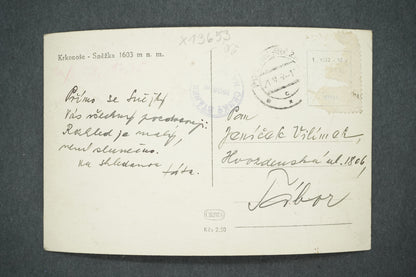 x 19653
Krkonoše - Sněžka 1603 m n. m.
Přímo ze Sněžky
Vás všechny pozdravuji.
Rozhled je malý,
není slunečno.
Na shledanou
táta.
Pan
Jeníček Vilímek,
Hvozdenská ul. 1806,
Tábor
Kčs 2,50